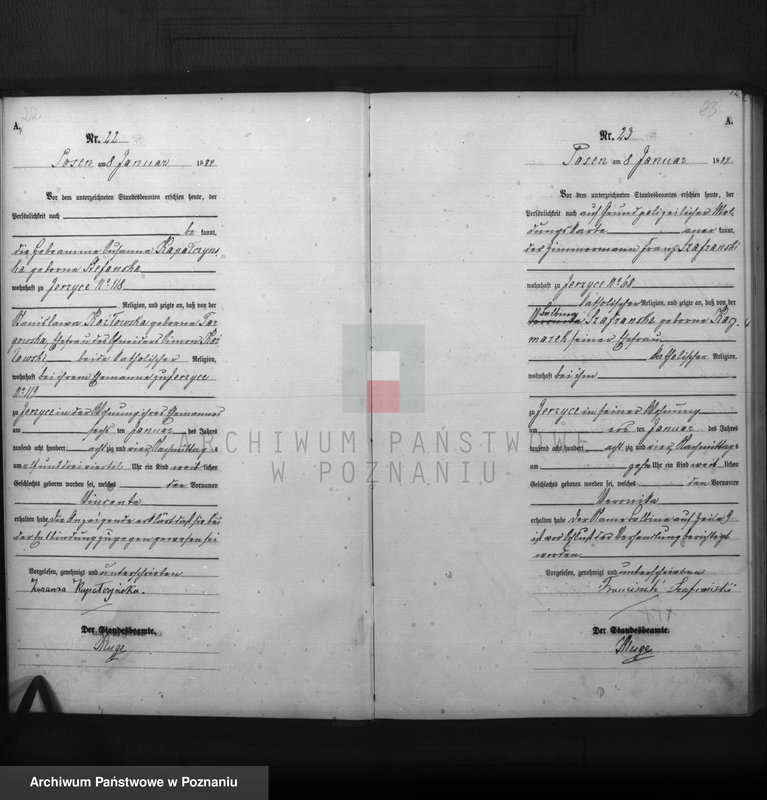 22
A.
Nr. 22
Posen am 8 Januar 1884
Vor dem unterzeichneten Standesbeamten erschien heute, der
Persönlichkeit nach
be kannt,
die Hebeamme Susanna
geborne Stefanska
wohnhaft zu Jerzyce No 118
Religion, und zeigte an, daß von der
Stanislawa Kozlowska geborne
Ehefrau des Schneiders Simon Koz
lowski beide katholischer Religion,
wohnhaft bei ihrem Ehemanne zu Jerzyce
No 119
zu Jerzyce in der Wohnung ihres Ehemannes
am sechs ten Januar des Jahres
tausend acht hundert acht zig und vier Nachmittag s
um Uhr ein Kind weib lichen
Geschlechts geboren worden sei, welches den Vornamen
Vincenta
erhalten habe, die Anzeigende erklärt daß sie bei
der Entbindung zugegen gewesen sei
Vorgelesen, genehmigt und unterschrieben
Zuzanna
Der Standesbeamte.
Kluge
23
A.
Nr. 23
Posen am 8 Januar 1884
Vor dem unterzeichneten Standesbeamten erschien heute, der
Persönlichkeit nach auf Grund polizeilicher Mel
dungskarte aner kannt,
der Zimmermann Franz Szafranski
wohnhaft zu Jerzyce No 60
katholischer Religion, und zeigte an, daß von der
Balbina
Veronika Szafranska geborne Kacz
marek seiner Ehefrau
katholischer Religion,
wohnhaft bei ihm
zu Jerzyce in seiner Wohnung
am ers ten Januar des Jahres
tausend acht hundert acht zig und vier Nachmittag s
um zehn Uhr ein Kind weib lichen
Geschlechts geboren worden sei, welches den Vornamen
Veronika
erhalten habe Der Name Balbina auf Zeile 9
ist vor Schluß der Verhandlung berichtigt
worden
Vorgelesen, genehmigt und unterschrieben
Franciszek Szafrański
Der Standesbeamte.
Kluge
ARCHIWUM PAŃSTWOWE
W POZNANIU
Archiwum Państwowe w Poznaniu